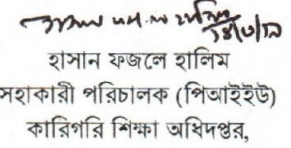 হাসান ফজলে হালিম
সহকারী পরিচালক (পিআইইউ)
কারিগরি শিক্ষা অধিদপ্তর,